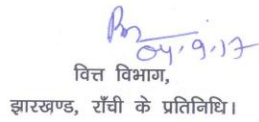 04.9.17
वित्त विभाग,
झारखण्ड, राँची के प्रतिनिधि।